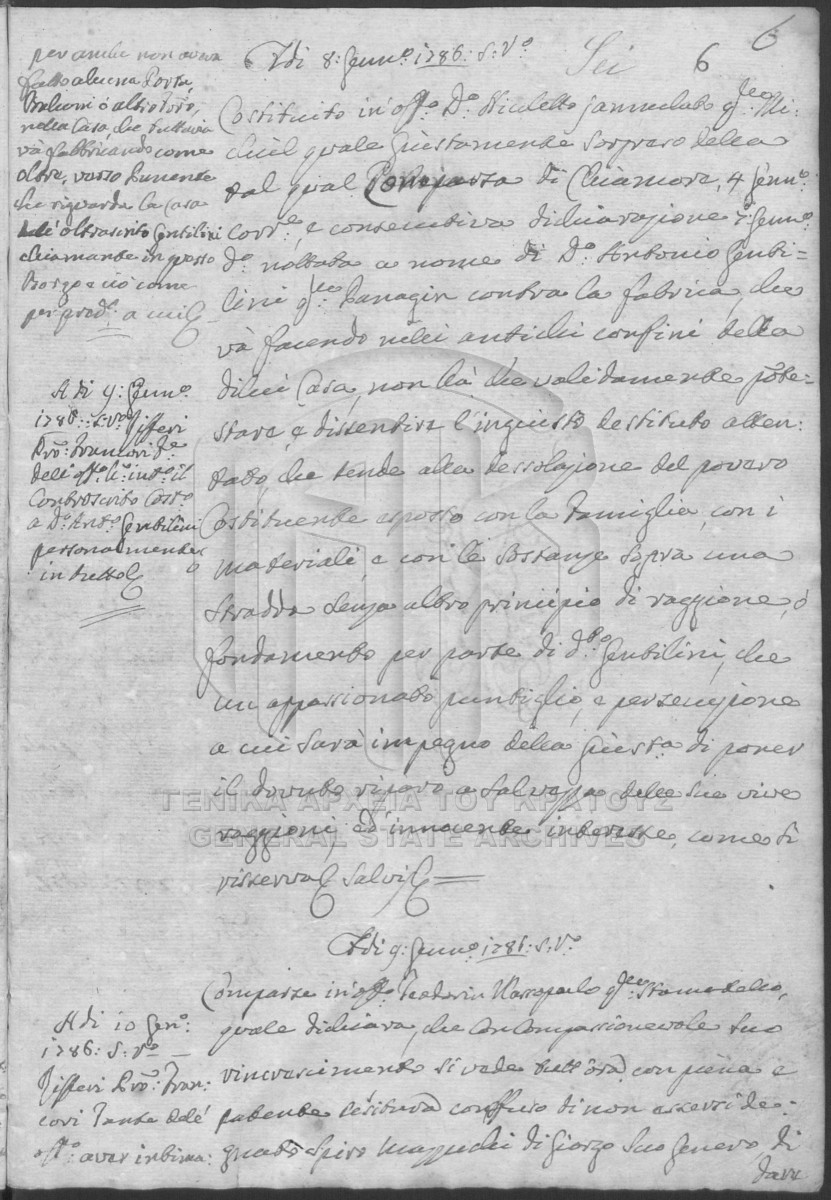 6
Sei 6
per anche non aveva
fatto alcuna Porta,
Balconi ò altro foro,
nella Casa, che tuttavia
và fabbricando come
oltre, verso Ponente
che riguarda la Casa
del oltrascrito Gentilini
chiamante in questo
Borgo e ciò come
per
Adi 8: Genn.o 1786: S: V.o
Costituito in Off.o D.o Nicoletto Jannulato q.m Mi-
chiel quale Giustamente sorpreso della
tal qual Comparsa di Chiamore, 4 Genn.o
corr.e, e consentiva dichiarazione 7: Genn.o
d.o nottata a nome di D.o Antonio Gentili-
lini q.m Panagin contra la fabrica, che
và facendo nelli antichi confini della
di lui Casa, non hà che validamente pote-
stare, e dissentire l'ingiusto destituto atten-
tato, che tende alla dessolazione del povero
Costituente esposto con la Famiglia, con i
materiali, e con le sostanze sopra una
stradda senza altro principio di raggione, ò
fondamento per parte di d.to Gentilini, che
un appassionato puntiglio, e persecuzione
a cui sarà impegno della Giust.a di poner
il dovuto riparo a salvezza delle sue vive
raggioni, ed innocente interesse, come si
risserva Salvis
A di 9: Genn.o
1786: S: V.o Rifferi
Pro: Francori
dell' Off.o
Controscrito Cost.o
a D.o Ant.o Gentilini
personalmente
in tutto
ΓΕΝΙΚΑ ΑΡΧΕΙΑ ΤΟΥ ΚΡΑΤΟΥΣ
GENERAL STATE ARCHIVES
Adi 9: Genn.o 1786: S: V.o
Comparse in Off.o Teodorin q.m
quale dichiara, che con compassionevole suo
rincrescimento si vede tutt'ora con piena e
patente confuso di non essersi de-
gnato Spiro di Giorgo suo Genero di
dare
A di 10 Gen.o
1786: S: V.o
Rifferi Pro: Fran-
cori Fante del
Off.o aver intima-